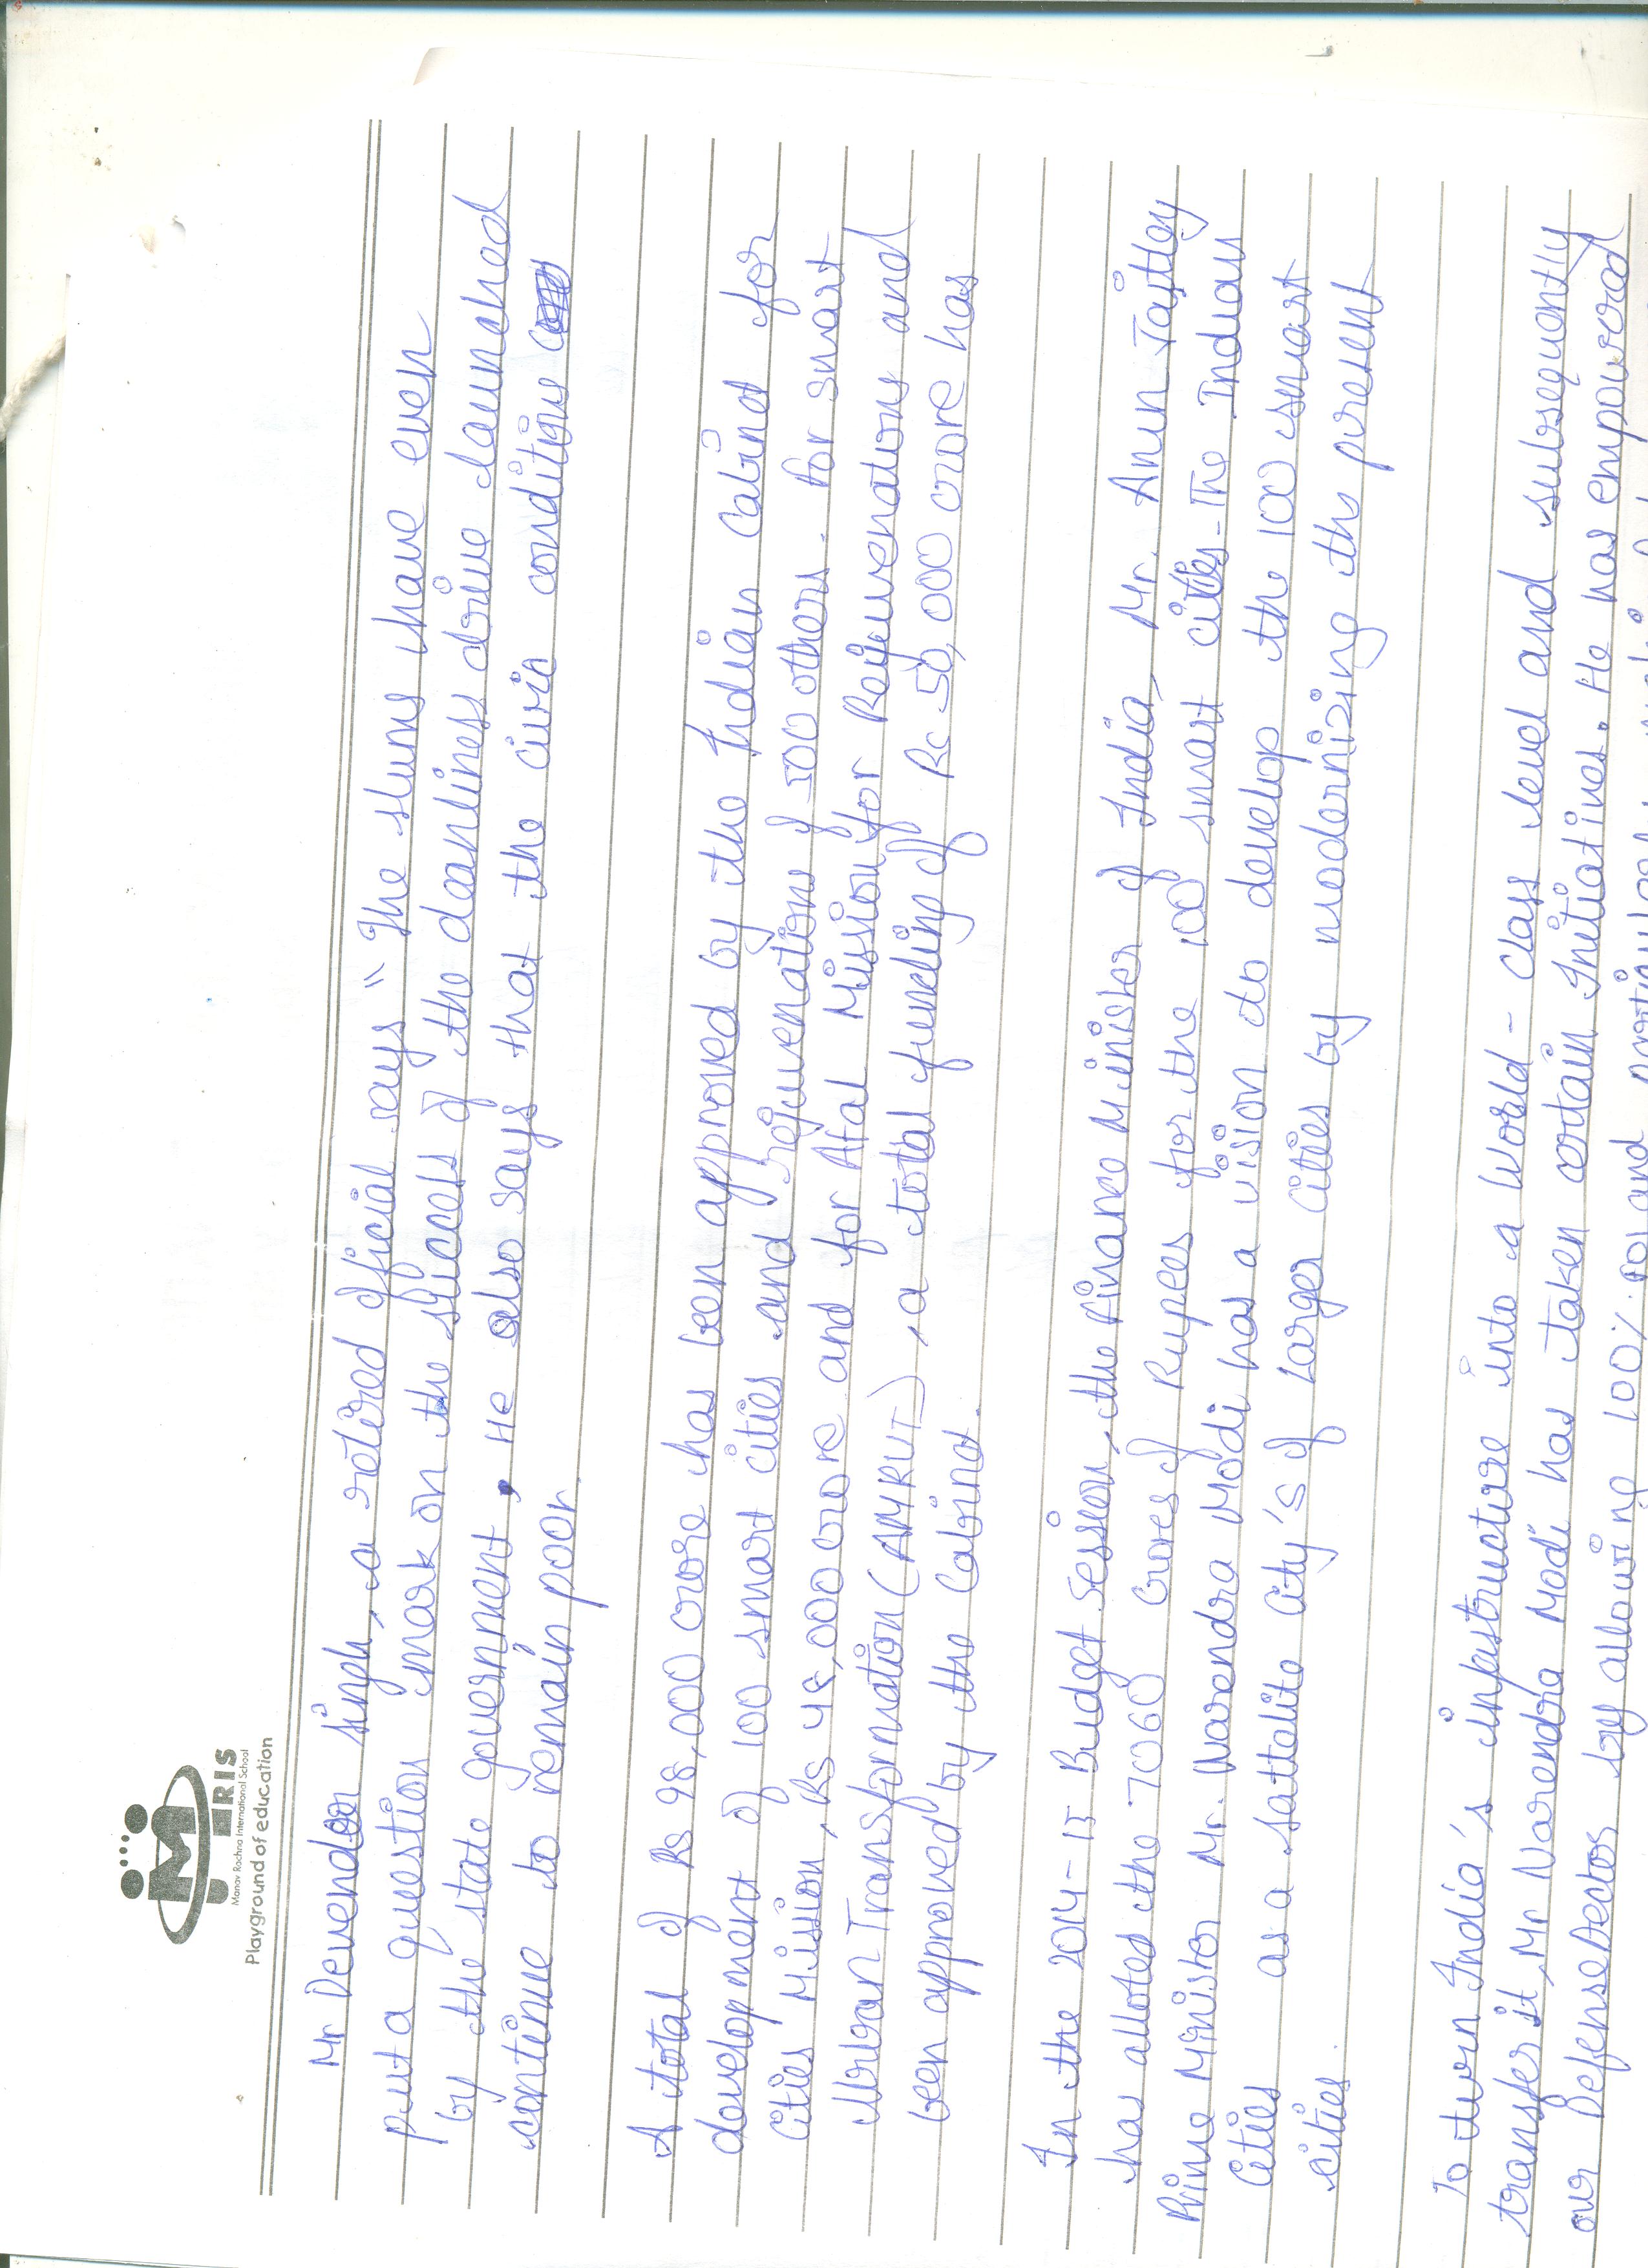 MRIS
Manav Rachna International School
Playground of education
Mr Devender Singh, a retired official says " The slums have even
put a question mark on the success of the cleanliness drive launched
by the state government, He also says that the civic conditions
continue to remain poor.
A total of Rs 98,000 crore has been approved by the Indian Cabinet for
development of 100 smart cities and rejuvenations of 500 others. For smart
cities Mission, Rs 48,000 crore and for Atal Mission for Rejuvenations and
Urban Transformation (AMRUT), a total funding of Rs 50,000 crore has
been approved by the Cabinet.
In the 2014-15 Budget session, the Finance Minister of India, Mr. Arun Jaitley
has alloted the 7060 Crores of Rupees for the 100 smart cities. The Indian
Prime Minister Mr. Narendra Modi has a vision to develop the 100 smart
Cities as a sattelite city's of Larger cities by modernizing the present
cities.
To turn India's infastructure into a World-Class level and subsequently
transfer it, Mr Narendra Modi has taken certain Initiatives. He has empowered
our Defense Sector by allowing 100% and